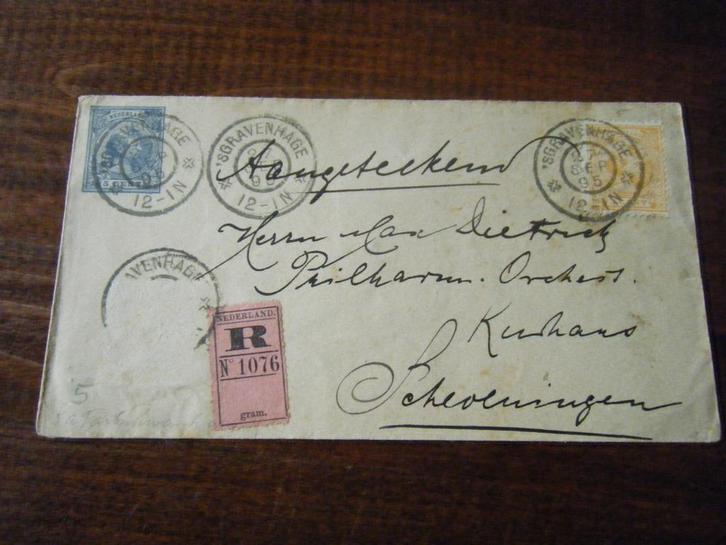 NEDERLAND
5 CENT
'SGRAVENHAGE
12-1N
'SGRAVENHAGE
95
12-1N
'SGRAVENHAGE
27
SEP
95
12-1N
Aangeteekend
Herrn Max Dietrich
Philharm. Orchest.
Kurhaus
Scheveningen
AVENHAGE
NEDERLAND.
R
No 1076
gram.
5